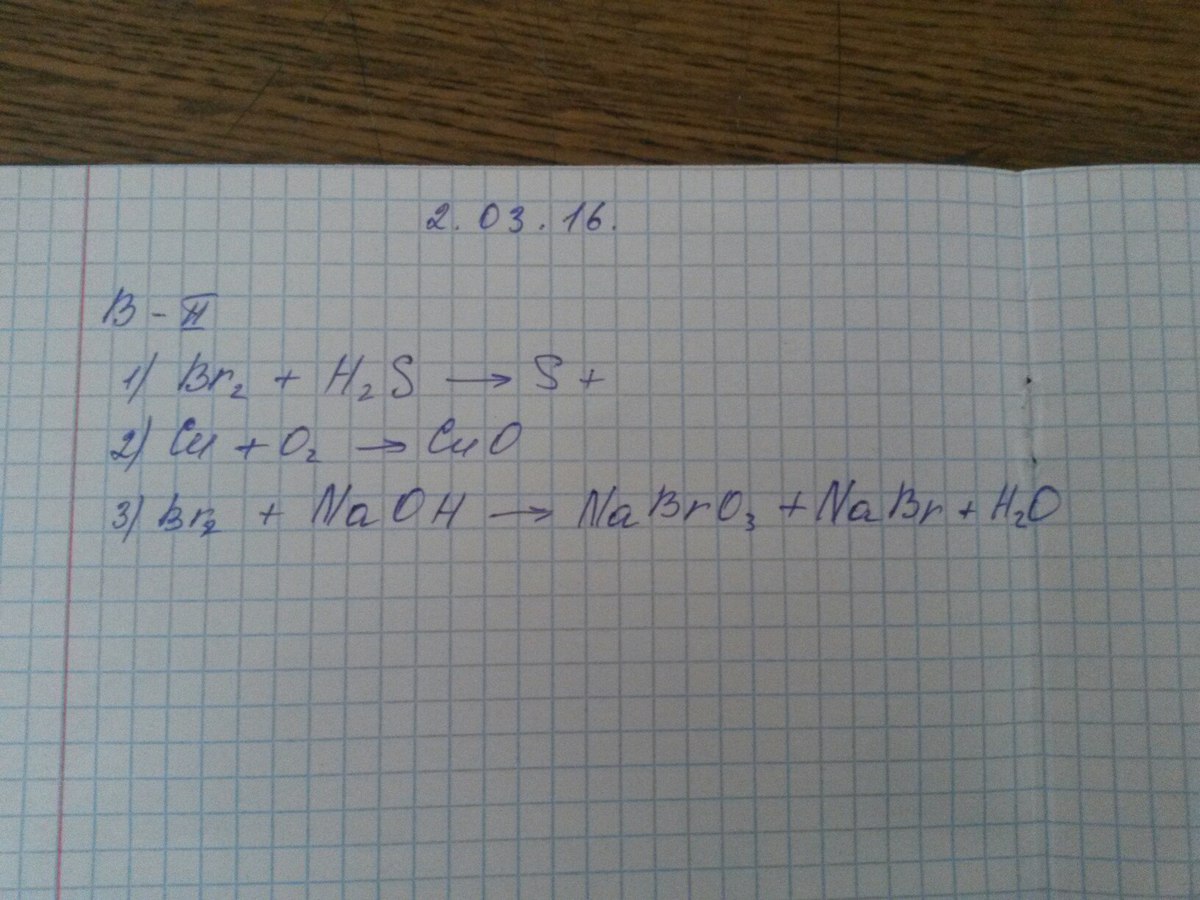 2.03.16.
В - II
1) Br₂ + H₂S → S +
2) Cu + O₂ → CuO
3) Br₂ + NaOH → NaBrO₃ + NaBr + H₂O